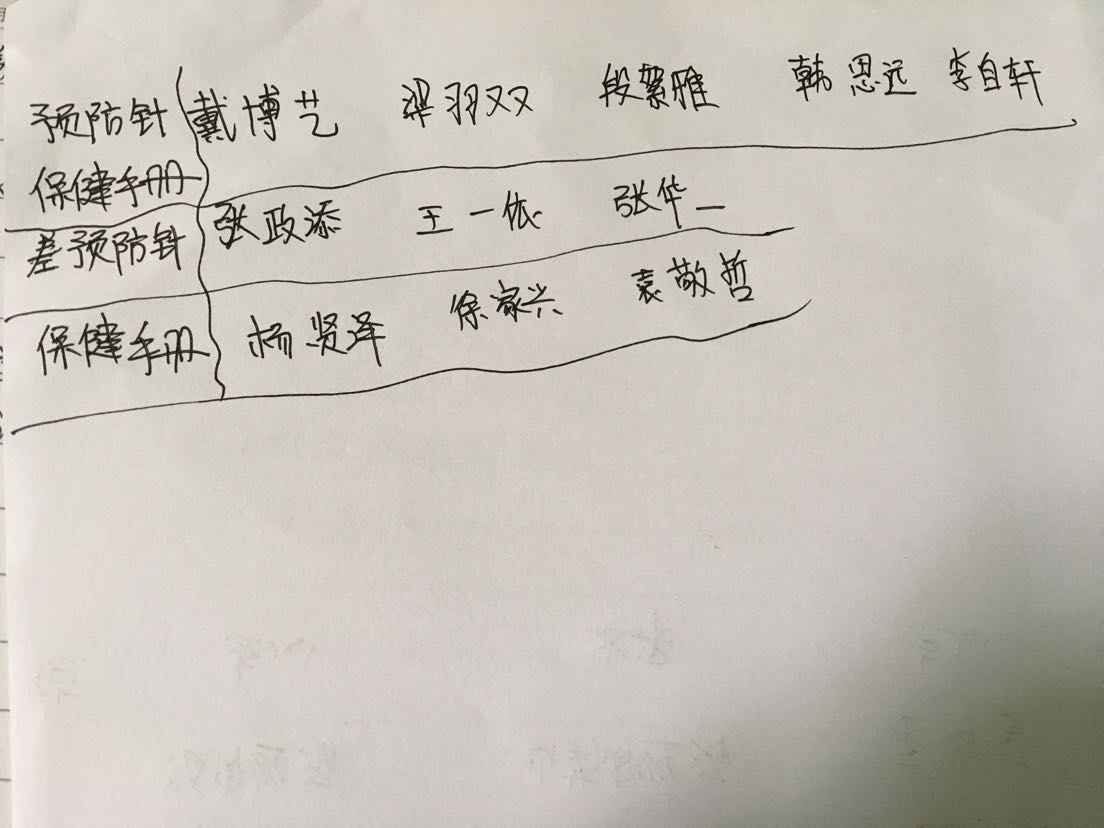 预防针 戴博艺 梁羽双 段絮雅 韩思远 李自轩
保健手册
差预防针 张政添 王一依 张华一
保健手册 杨贤泽 徐家兴 袁敬哲